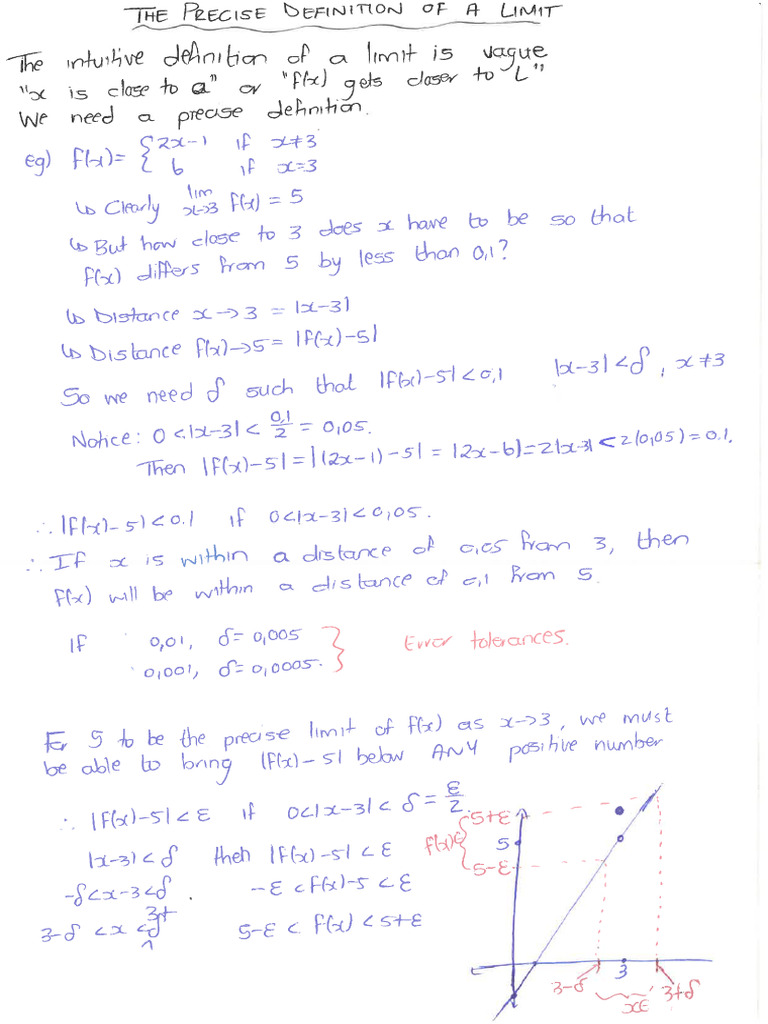 THE PRECISE DEFINITION OF A LIMIT
The intuitive definition of a limit is vague
"x is close to a" or "f(x) gets closer to L"
We need a precise definition.
eg) f(x)= { 2x-1 if x≠3
6 if x=3
↳ Clearly lim x→3 f(x) = 5
↳ But how close to 3 does x have to be so that
f(x) differs from 5 by less than 0,1?
↳ Distance x→3 = |x-3|
↳ Distance f(x)→5 = |f(x)-5|
So we need δ such that |f(x)-5|<0,1 |x-3|<δ, x≠3
Notice: 0<|x-3|< 0,1/2 = 0,05.
Then |f(x)-5|=|(2x-1)-5| = |2x-6|=2|x-3|<2(0,05)=0.1.
∴ |f(x)-5|<0.1 if 0<|x-3|<0,05.
∴ If x is within a distance of 0,05 from 3, then
f(x) will be within a distance of 0,1 from 5.
If 0,01, δ=0,005
0,001, δ=0,0005.
Error tolerances.
For 5 to be the precise limit of f(x) as x→3, we must
be able to bring |f(x)-5| below ANY positive number
∴ |f(x)-5|<ε if 0<|x-3|<δ=ε/2.
|x-3|<δ then |f(x)-5|<ε
-δ<x-3<δ. -ε<f(x)-5<ε
3-δ<x<3+δ 5-ε<f(x)<5+ε
5+ε
f(x)∈
5
5-ε
3-δ
3
3+δ
x∈